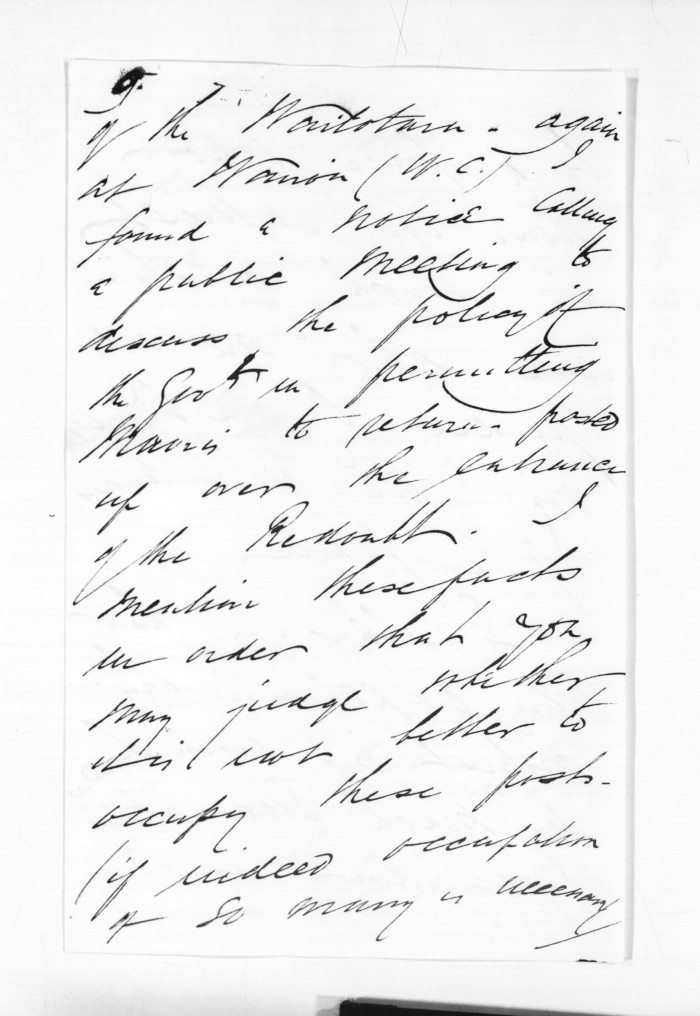 5.
of the Waitotara - again
at Wairoa (W.C.) I
found a notice calling
a public meeting to
discuss the policy of
the Govt in permitting
Maoris to return - posted
up over the entrance
of the Redoubt. I
mention these facts
in order that you
may judge whether
it is not better to
occupy these posts -
(if indeed occupation
of so many is necessary)